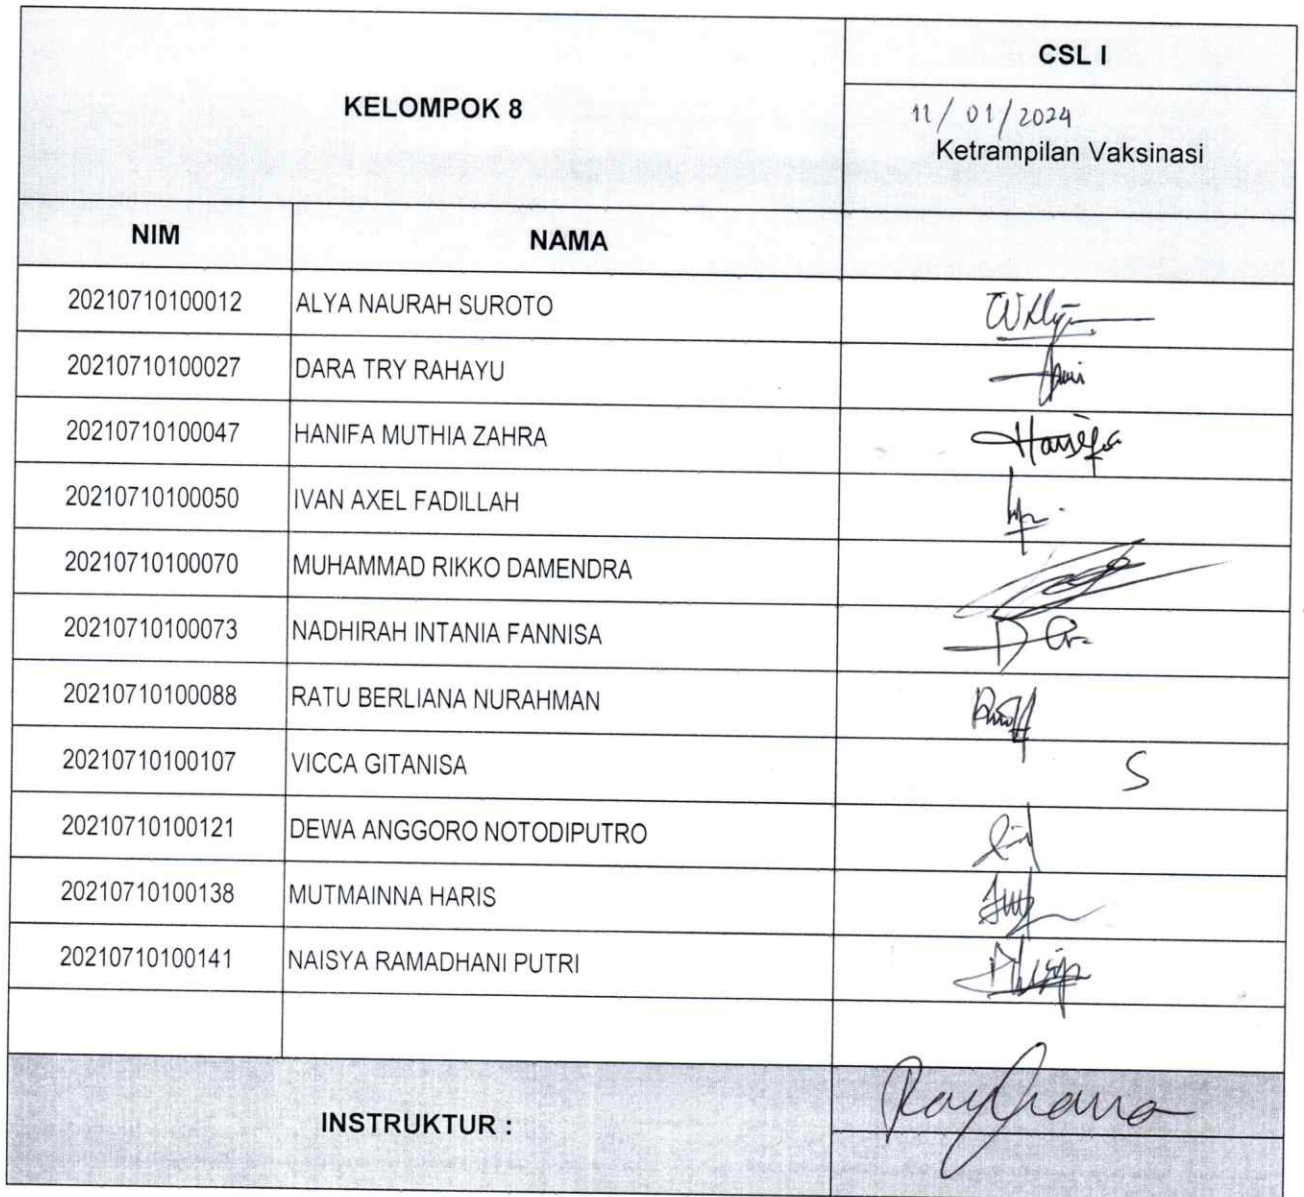 CSL I
KELOMPOK 8
11/01/2024
Ketrampilan Vaksinasi
NIM NAMA
20210710100012 ALYA NAURAH SUROTO
20210710100027 DARA TRY RAHAYU
20210710100047 HANIFA MUTHIA ZAHRA Hanifa
20210710100050 IVAN AXEL FADILLAH
20210710100070 MUHAMMAD RIKKO DAMENDRA
20210710100073 NADHIRAH INTANIA FANNISA
20210710100088 RATU BERLIANA NURAHMAN
20210710100107 VICCA GITANISA S
20210710100121 DEWA ANGGORO NOTODIPUTRO
20210710100138 MUTMAINNA HARIS
20210710100141 NAISYA RAMADHANI PUTRI
INSTRUKTUR : Rayhana